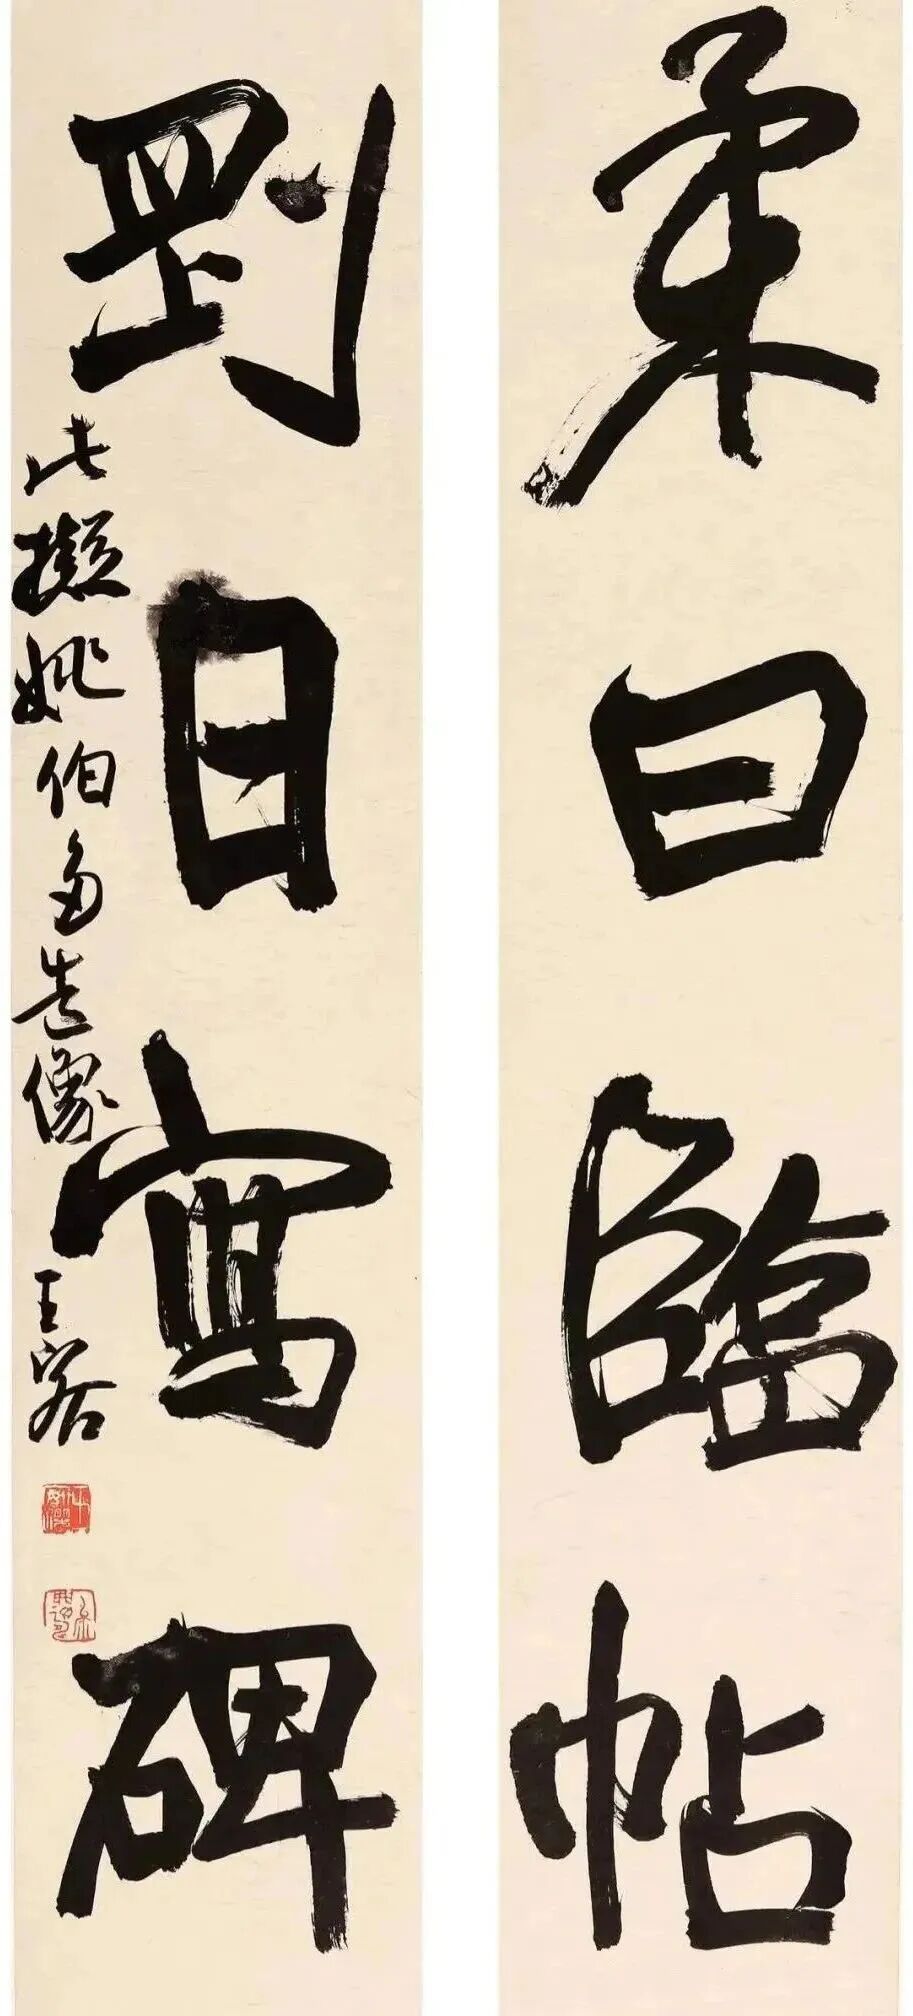 柔日臨帖
剛日寫碑
此擬姚伯多造像
王客